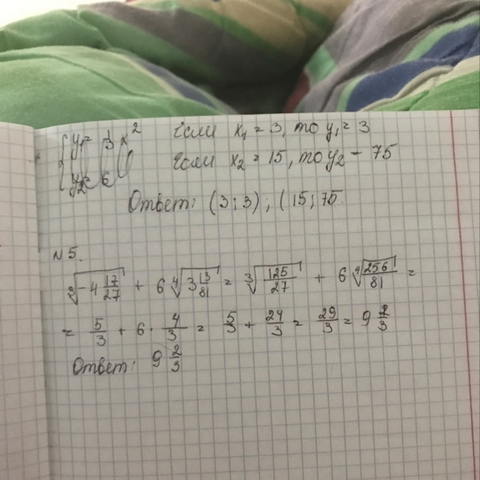 Если x₁ = 3, то y₁ = 3
Если x₂ = 15, то y₂ - 75
Ответ: (3; 3), (15; 75
N 5.
∛(-4 17/27) + 6 ∜(3 13/81) = ∛(125/27) + 6 ∜(256/81) =
= 5/3 + 6 · 4/3 = 5/3 + 24/3 = 29/3 = 9 2/3
Ответ: 9 2/3